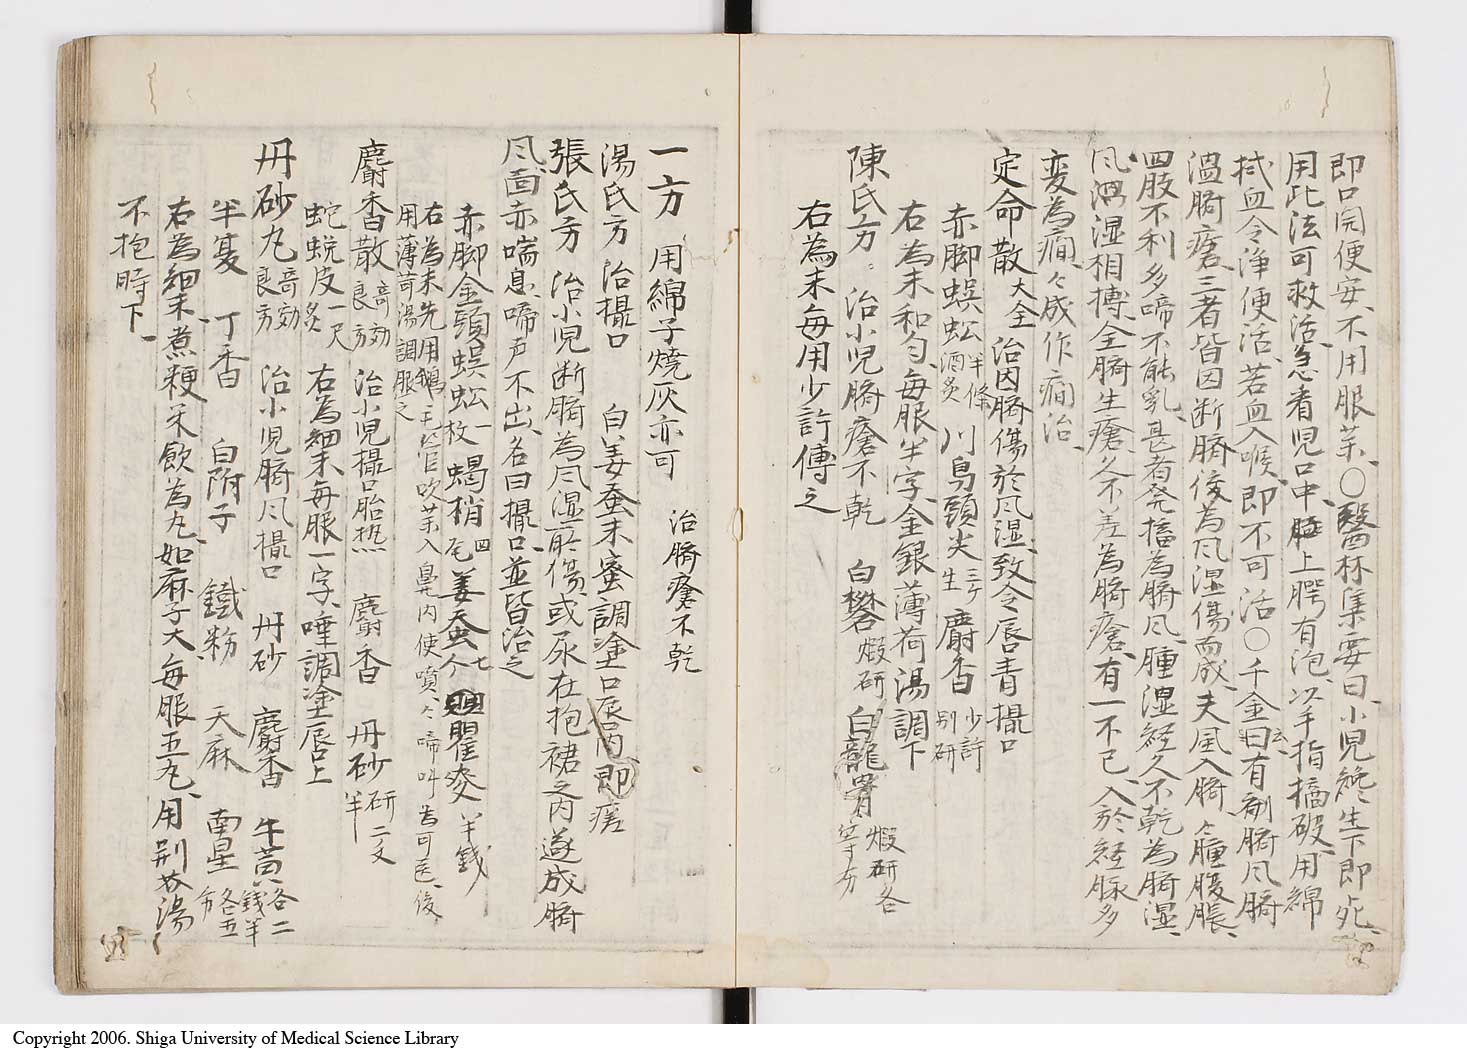 即口開便安、不用服薬、〇醫林集要曰、小児纔生下即死、
用此法可救活、急看児口中、懸上腭有泡、以手指擿破、用綿
拭血令浄便活、若血入喉、即不可活〇千金云、曰有剬臍風臍
湿臍瘡、三者皆因断臍後為風湿傷而成、夫風入臍、々腫腹脹、
四肢不利多啼不能乳、甚者発搐為臍風、腫湿経久不乾為臍湿、
風湿相搏、全臍生瘡、久不差為臍瘡、有一不已、入於経脉多
変為癇、々成作癇治、
定命散 大全 治因臍傷於風湿、致令唇青撮口
赤脚蜈蚣 半條酒炙 川烏頭尖 三ケ生 麝香 少許別研
右為末和匀、毎服半字、金銀薄荷湯調下
陳氏方 治小児臍瘡不乾 白礬 煅研 白龍骨 煅研各等分
右為末毎用少許傅之
一方 用綿子燒灰亦可 治臍瘡不乾
湯氏方 治撮口 白姜蚕末蜜調塗口唇内、即瘥
張氏方 治小児断臍為風湿所傷、或尿在抱裙之内、遂成臍
風、面赤喘息、啼声不出、名曰撮口、並皆治之
赤脚金頭蜈蚣 一枚 蝎梢 四尾 姜蚕 七个 瞿麥 半錢
右為末先用鵝毛管吹薬入鼻内使噴々啼叫爲可医、後
用薄荷湯調服之
麝香散 奇効良方 治小児撮口胎热 麝香 丹砂 研二文半
蛇蛻皮 一尺炙 右為細末、毎服一字、唾調塗唇口上
丹砂丸 奇効良方 治小児臍風撮口 丹砂 麝香 牛黄 各二錢半
半夏 丁香 白附子 鐵粉 天麻 南星 各五分
右為細末煮粳米飲為丸、如麻子大、毎服五丸、用荆芥湯
不抱時下、
Copyright 2006. Shiga University of Medical Science Library